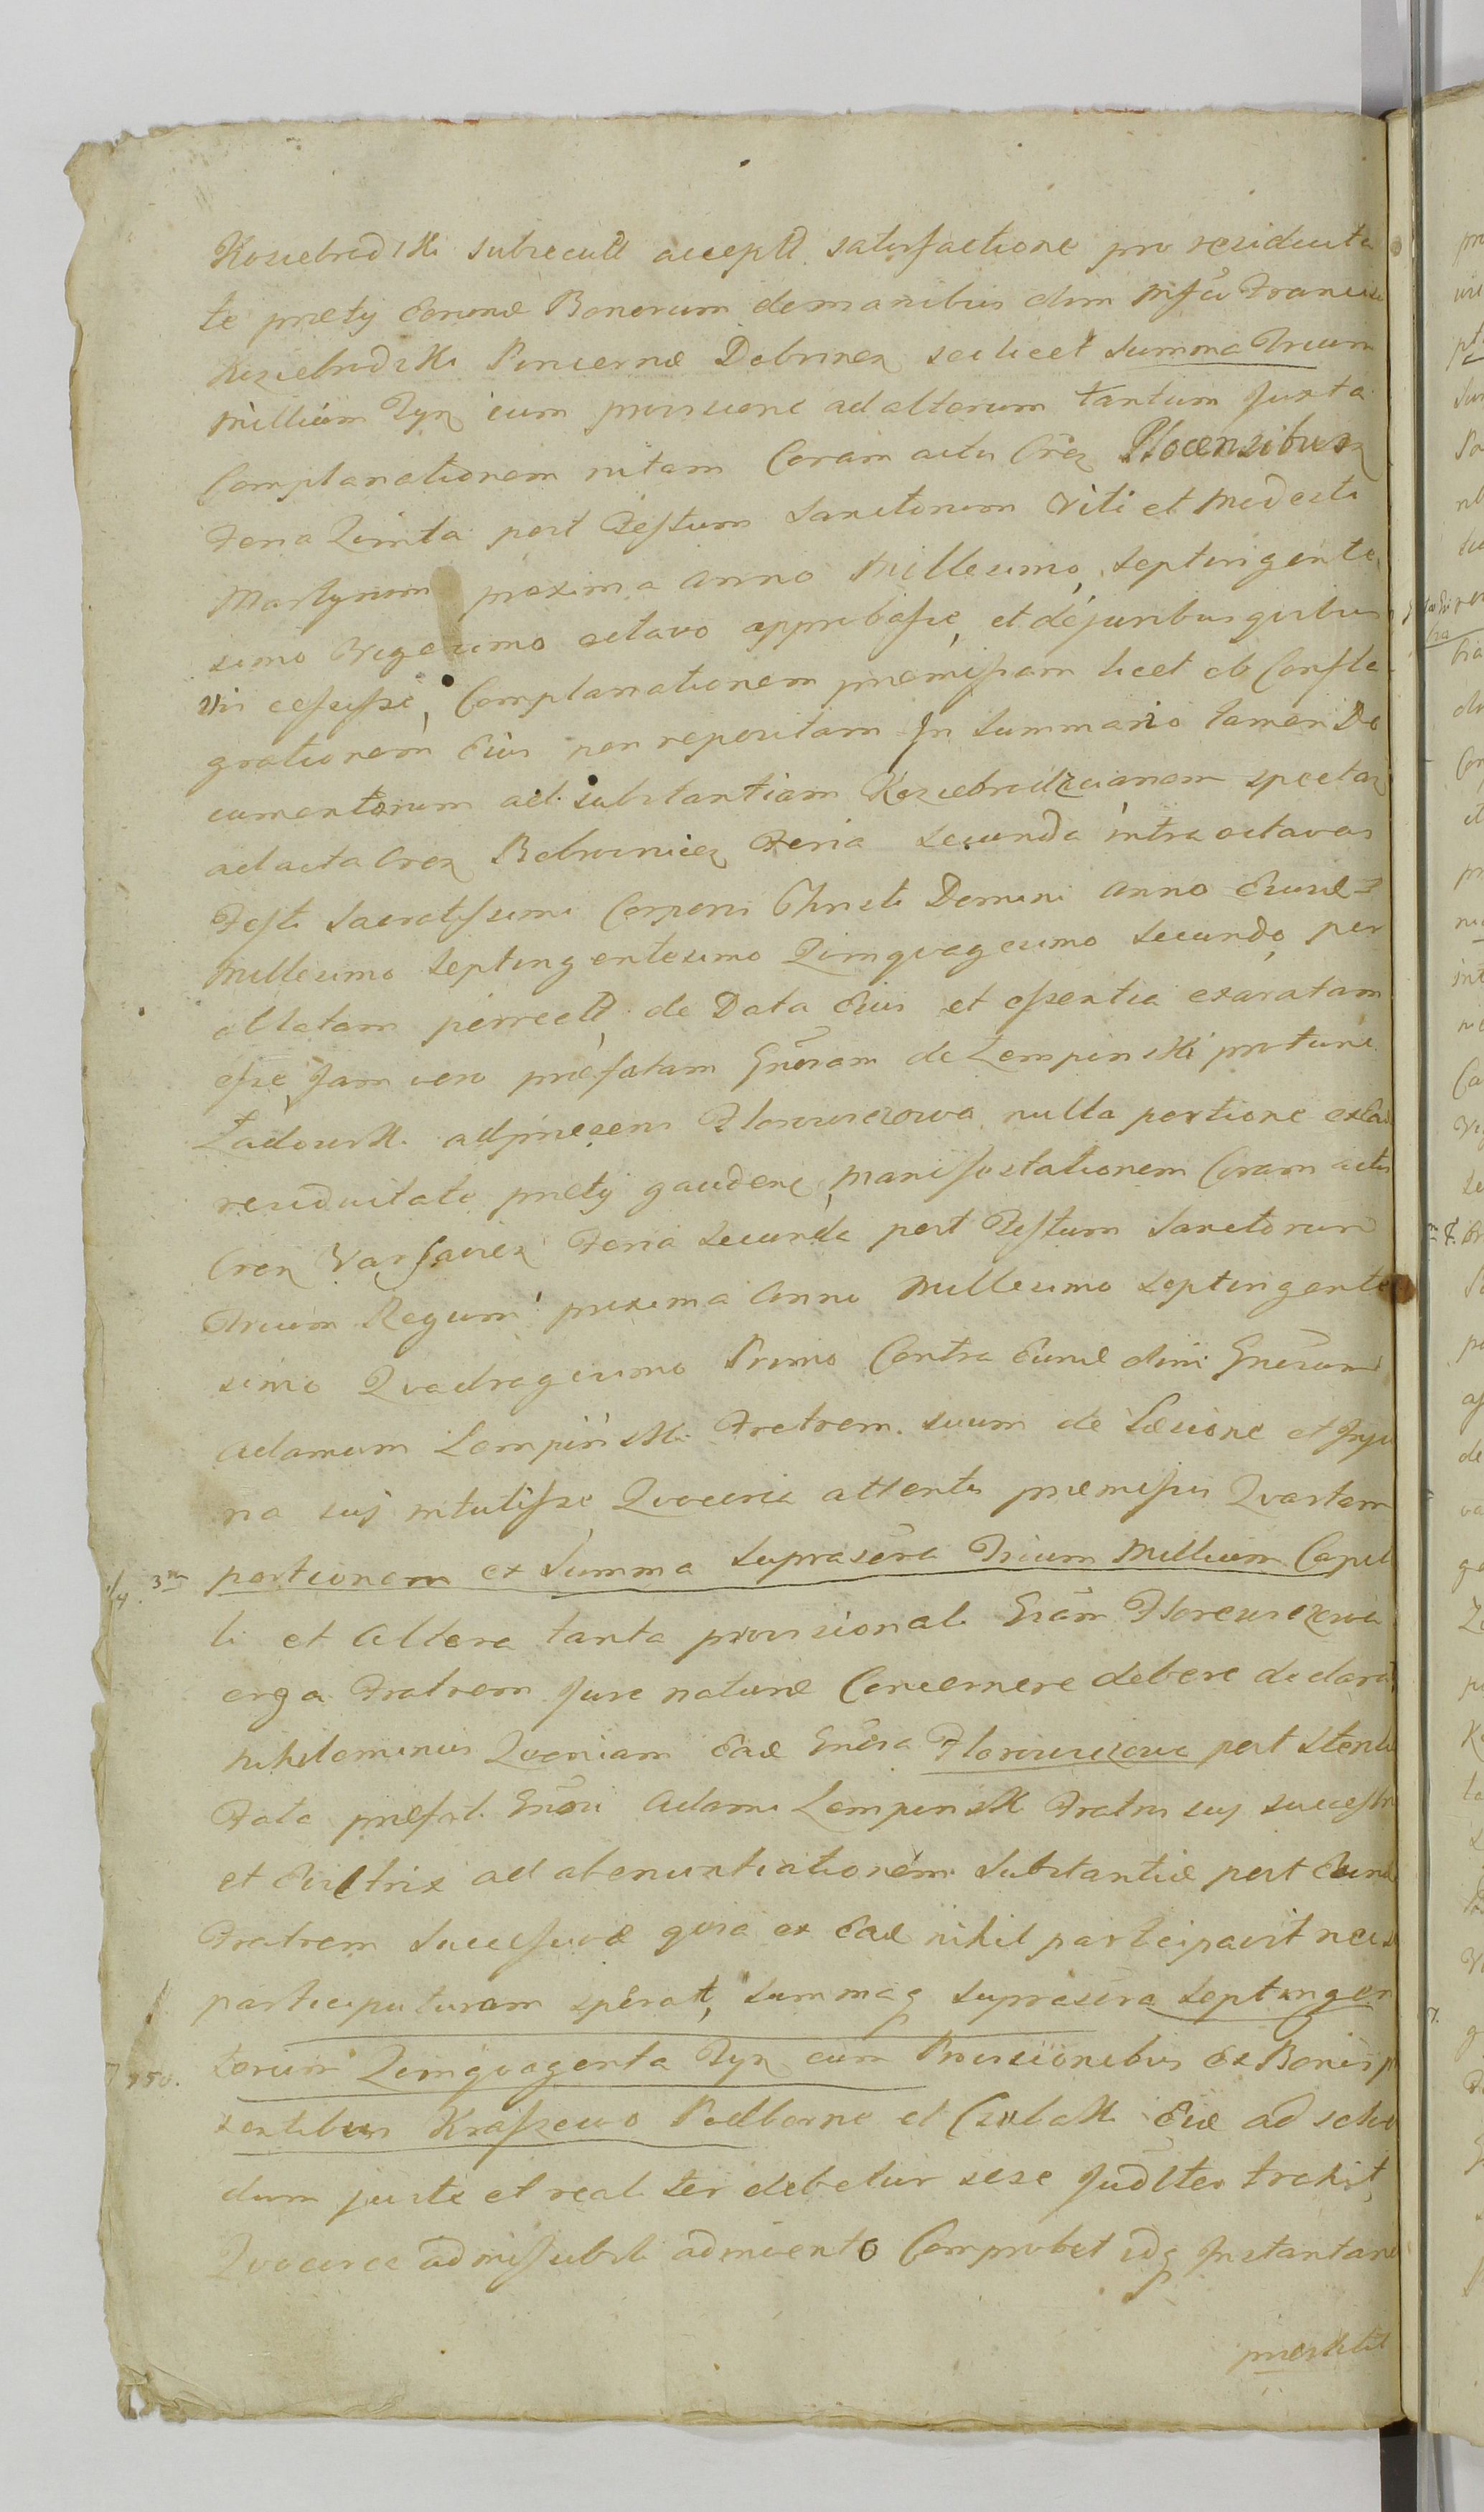 Koziebrodzki subsecutt acceptt satisfactione pro residuita
te præty eorund Bonorum de manibus olim Mfci Francisci
Koziebrodzki Pincernæ Dobrinen scilicet Summa Trium
Millium Tyn cum provisione ad alterum tantum Juxta
Complanationem initam Coram actis Cren Plocensibus
Feria Quinta post Festum Sanctorum Viti et Modesti
Martyrum proxima anno Millesimo, Septingente
simo Vigesimo octavo approbasse, et de juribus quibus
vis cessisse, Complanationem præmissam licet ob Confla
grationem Eius non repositam In Summario tamen Do
cumentorum ad substantiam Koziebrodzcianam spectan
ad acta Cren Bobrownicen Feria Secunda intra octavas
Festi Sacratissimi Corporis Christi Domini Anno Eiusd
Millesimo Septingentesimo Quinquagesimo Secundo, per
oblatam porrectt de Data Eius et essentia exaratam
esse, Jam vero præfatam Gnosam de Lempinski pro tunc
Ładowsk. ad præsens Floriuszowa nulla portione ex Ead
residuitate præty gaudere, manifestationem Coram actis
Cren Varsavien Feria Secunda post Festum Sanctorum
Trium Regum proxima Anno Millesimo Septingente
simo Quadragesimo Primo Contra Eund olim Gnosum
Adamum Lempinski Fratrem suum de Læsione et Inju
ria sui intulisse, Quocirca attentis præmissis Quartam
1/4 3m portionem ex Summa Suprascra Trium Millium Capita
li et Altera tanta provisionali Gsam Floriuszowa
erga Fratrem Jure naturæ Concernere debere declarat,
nihilominus Quoniam Ead Gnosa Floriuszowa post Sterilia
Fata præfati Gnosi Adami Lempinski Fratris sui successtrix
et Eius
ad abrenuntiationem Substantiæ post Eund
Fratrem Successivæ quia ex Ead nihil participavit nec se
participaturam speratt, Summaq suprascra Septingen
750. torum Quinquaginta Tyn cum Provisionibus Ex Bonis p
sentibus Kraszewo Podborne et Czubaki Eid ad solven
dum juste et realiter debetur sese Judlter trahit,
Quocirca
Comprobet idq Instantane
præstitit